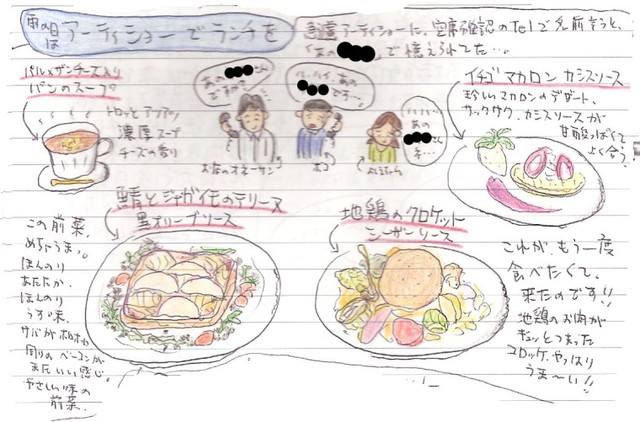 雨の日は
アーティショーでランチを
アーティショーに、空席確認のTelで名前言うと、
「あの
で憶えられてた…
パルメザンチーズ入り
パンのスープ
トロッとアツアツ
濃厚スープ
チーズの香り
あの
さん
ですか?
ハ、ハイ、あの
です…
ハハハ〜
あの
ね…
お店のオネーサン
ボク
イチゴマカロン カシスソース
珍しいマカロンのデザート、
サックサク、カシスソースが
甘酸っぱくて
よく合う!
鯖とジャガイモのテリーヌ
黒オリーブソース
この前菜、
めちゃうま。
ほんのり
あたたか、
ほんのり
うす味、
サバがホロホロ
周りのベーコンが
またいい感じ。
やさしい味の
前菜。
地鶏のクロケット
シーザーソース
これが、もう一度
食べたくて、
来たのです!!
地鶏のお肉が
ギュッとつまった
コロッケ、やっぱり
うま〜い!!